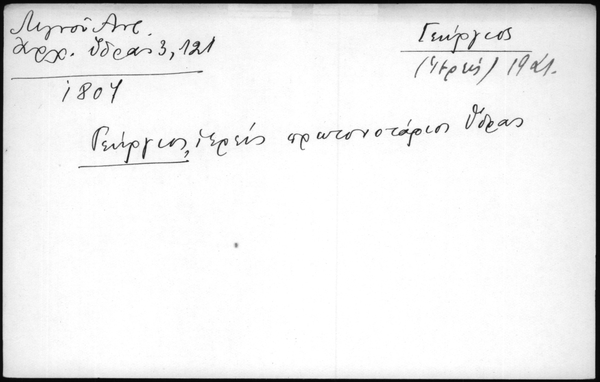 Λιγνοῦ Ἀντ.
Ἀρχ. Ὕδρας 3, 121
1807
Γεώργιος
(Ἱερεύς) 1921.
Γεώργιος, ἱερεύς πρωτονοτάριος Ὕδρας